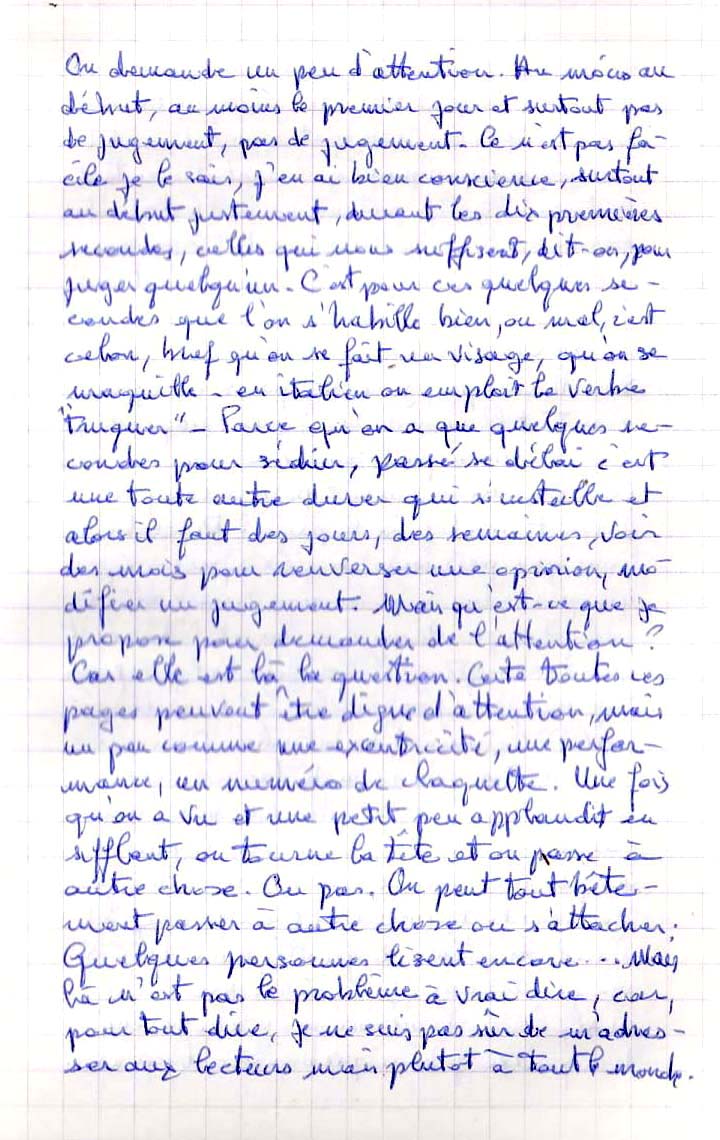 On demande un peu d'attention. Au moins au
début, au moins le premier jour et surtout pas
de jugement, pas de jugement. Ce n'est pas fa-
cile je le sais, j'en ai bien conscience, surtout
au début justement, durant les dix premières
secondes, celles qui nous suffisent, dit-on, pour
juger quelqu'un. C'est pour ces quelques se-
condes que l'on s'habille bien, ou mal, c'est
celon, bref qu'on se fait un visage, qu'on se
maquille - en italien on emploit le verbe
"truquer" - Parce qu'on a que quelques se-
condes pour séduir, passé se délai c'est
une toute autre durer qui s'installe et
alors il faut des jours, des semaines, voir
des mois pour renverser une opinion, mo
difier un jugement. Mais qu'est-ce que je
propose pour demander de l'attention ?
Car elle est là la question. Certe toutes ces
pages peuvent être digne d'attention, mais
un peu comme une exentricité, une perfor-
mance, un numéro de claquette. Une fois
qu'on a vu et une petit peu applaudit en
sifflant, on tourne la tête et on passe à
autre chose. Ou pas. On peut tout bête-
ment passer à autre chose ou s'attacher.
Quelques personnes lisent encore... Mais
là n'est pas le problème à vrai dire, car,
pour tout dire, je ne suis pas sûr de m'adres-
ser aux lecteurs mais plutot à tout le monde.